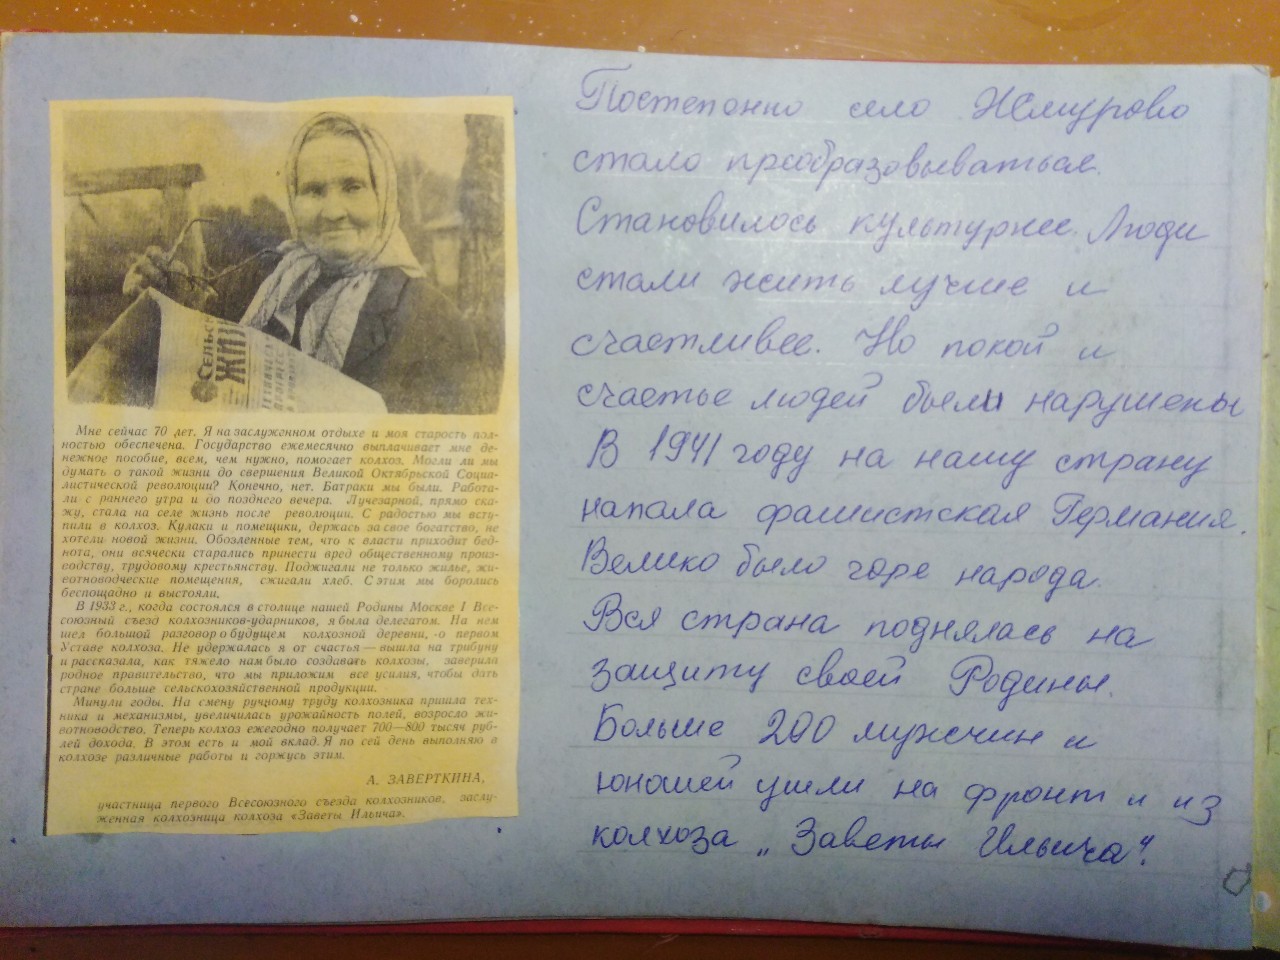 Сельск
ЖИЗ
Мне сейчас 70 лет. Я на заслуженном отдыхе и моя старость пол-
ностью обеспечена. Государство ежемесячно выплачивает мне де-
нежное пособие, всем, чем нужно, помогает колхоз. Могли ли мы
думать о такой жизни до свершения Великой Октябрьской Социа-
листической революции? Конечно, нет. Батраки мы были. Работа-
ли с раннего утра и до позднего вечера. Лучезарной, прямо ска-
жу, стала на селе жизнь после революции. С радостью мы всту-
пили в колхоз. Кулаки и помещики, держась за свое богатство, не
хотели новой жизни. Обозленные тем, что к власти приходит бед-
нота, они всячески старались принести вред общественному произ-
водству, трудовому крестьянству. Поджигали не только жилье, жи-
вотноводческие помещения, сжигали хлеб. С этим мы боролись
беспощадно и выстояли.
В 1933 г., когда состоялся в столице нашей Родины Москве I Все-
союзный съезд колхозников-ударников, я была делегатом. На нем
шел большой разговор о будущем колхозной деревни, о первом
Уставе колхоза. Не удержалась я от счастья — вышла на трибуну
и рассказала, как тяжело нам было создавать колхозы, заверила
родное правительство, что мы приложим все усилия, чтобы дать
стране больше сельскохозяйственной продукции.
Минули годы. На смену ручному труду колхозника пришла тех-
ника и механизмы, увеличилась урожайность полей, возросло жи-
вотноводство. Теперь колхоз ежегодно получает 700—800 тысяч руб-
лей дохода. В этом есть и мой вклад. Я по сей день выполняю в
колхозе различные работы и горжусь этим.
А. ЗАВЕРТКИНА,
участница первого Всесоюзного съезда колхозников, заслу-
женная колхозница колхоза «Заветы Ильича».
Постепенно село Жмурово
стало преобразовываться.
Становилось культурнее. Люди
стали жить лучше и
счастливее. Но покой и
счастье людей были нарушены
В 1941 году на нашу страну
напала фашистская Германия.
Велико было горе народа.
Вся страна поднялась на
защиту своей Родины.
Больше 200 мужчин и
юношей ушли на фронт и из
колхоза „Заветы Ильича".